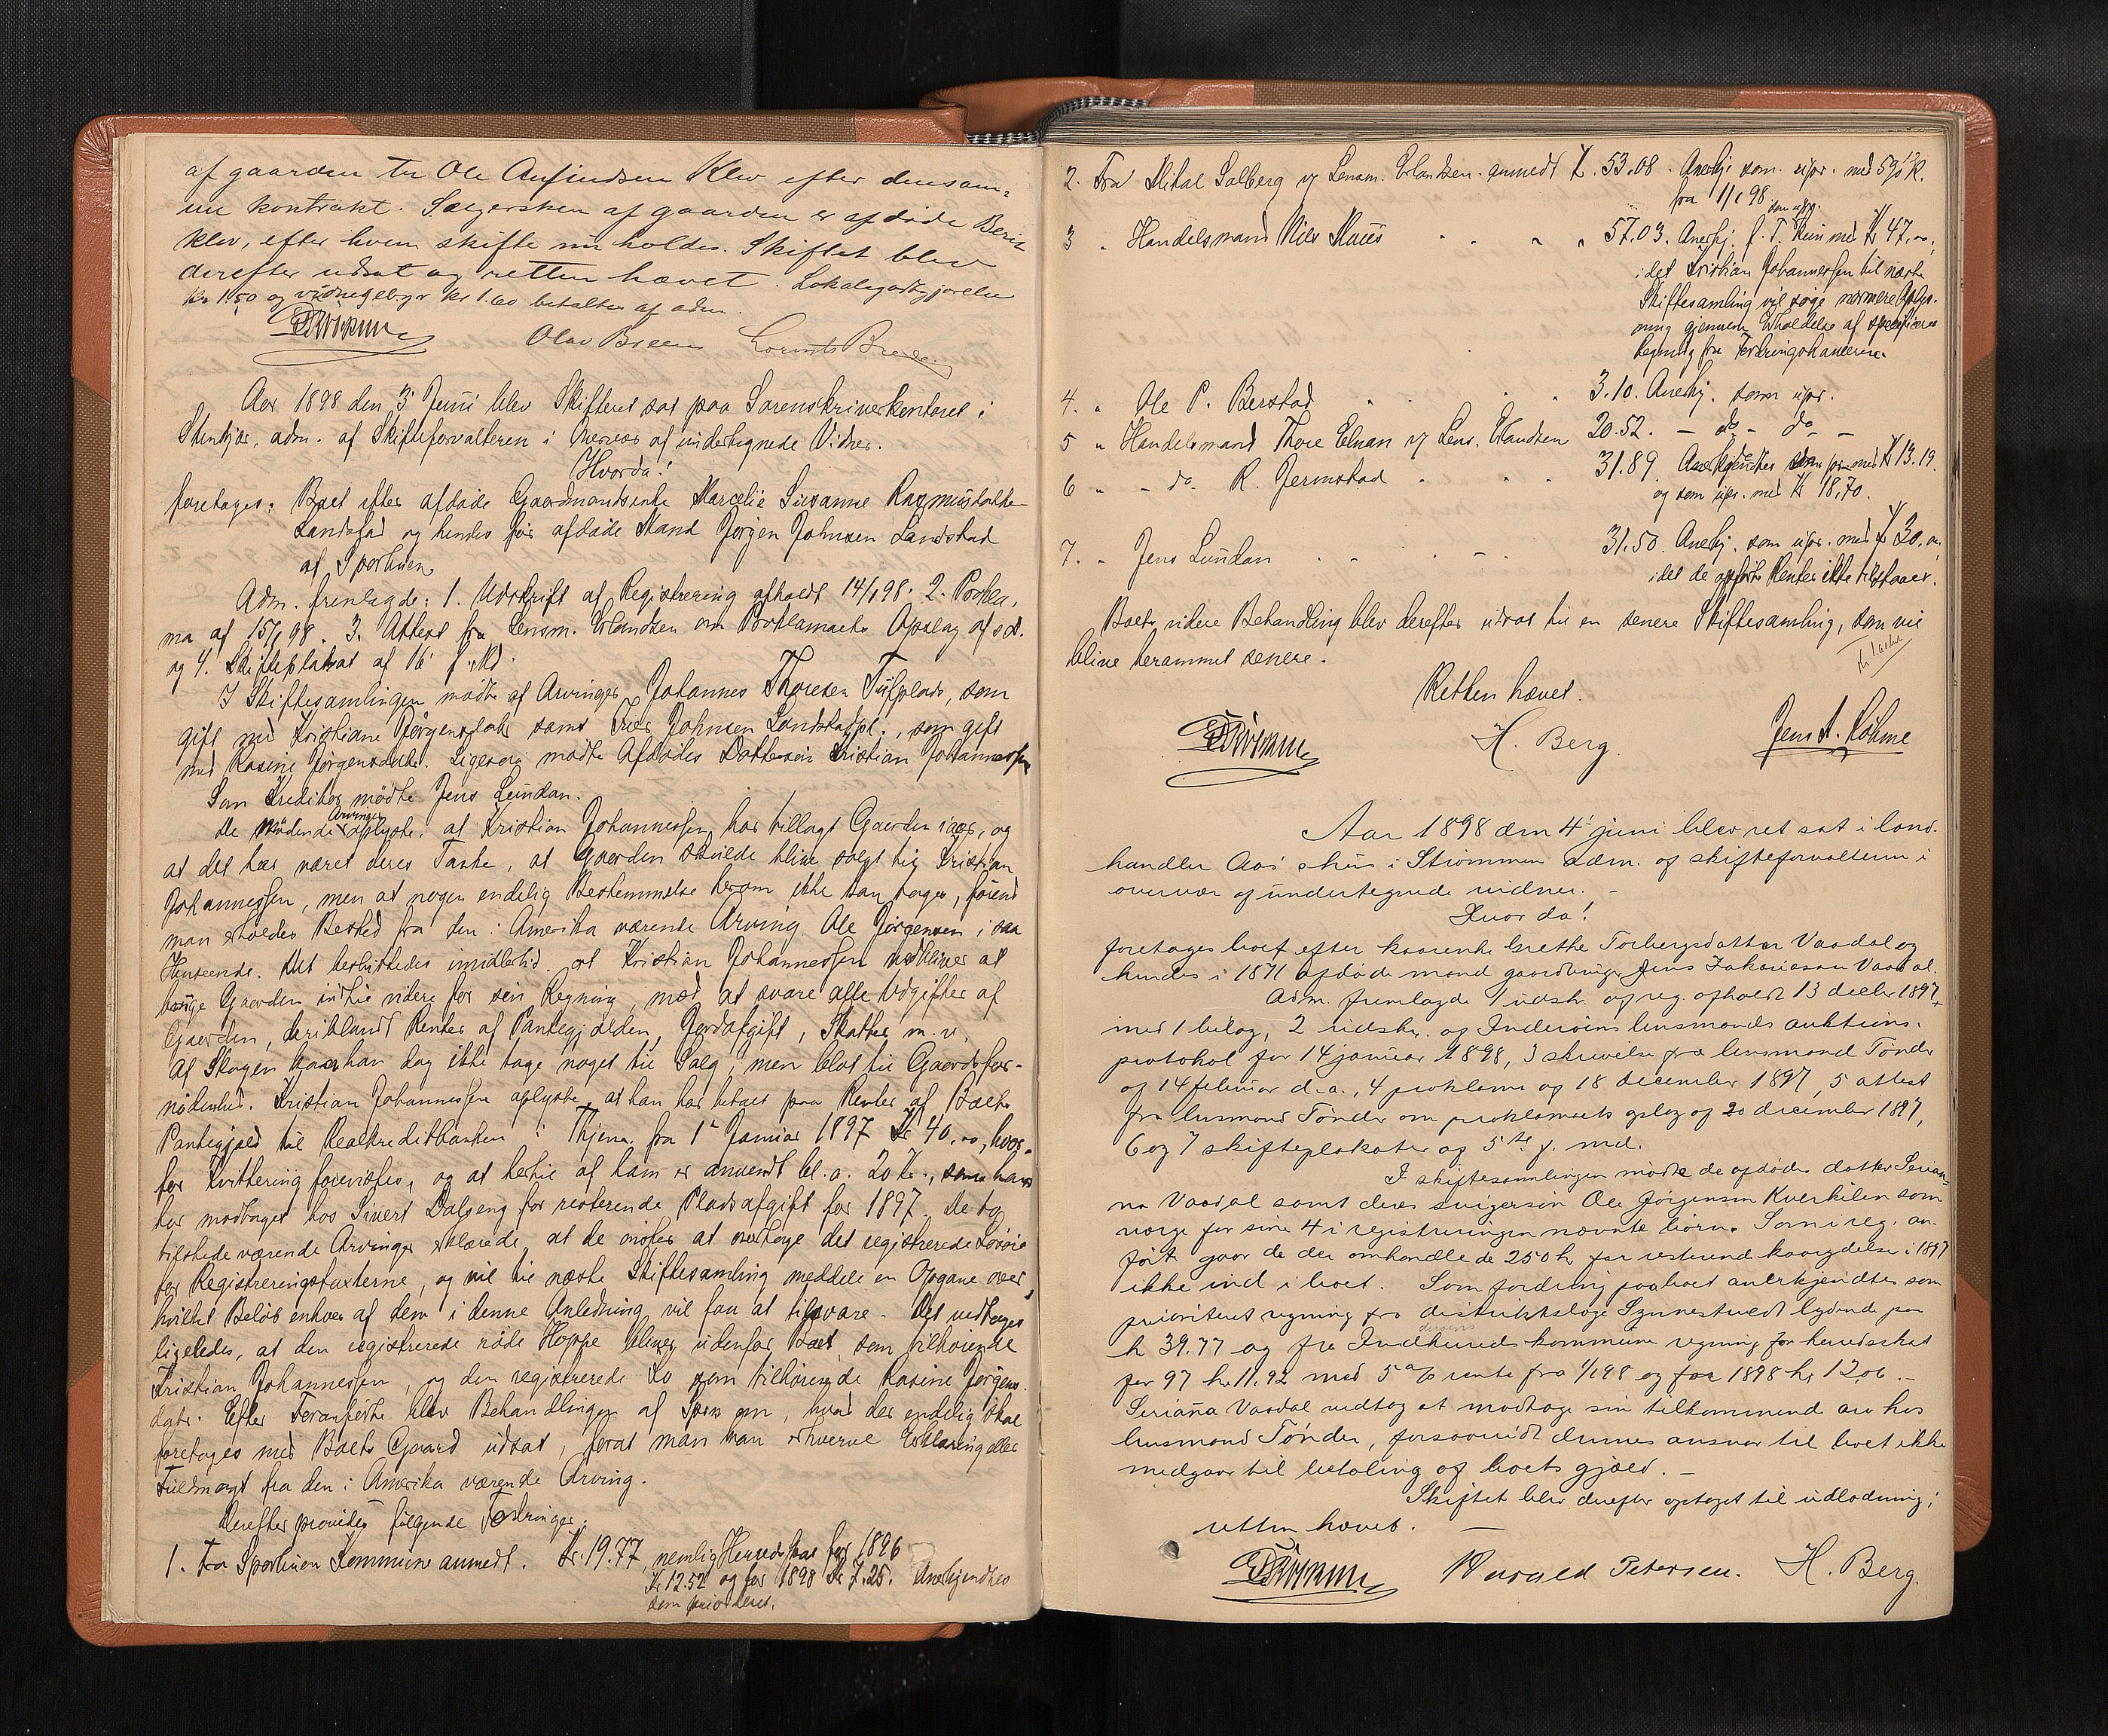 af gaarden til Ole Anfindsen Klev efter densam-
me kontrakt. Sælgersken af gaarden er afdøde Berit
Klev, efter hvem skifte nu holdes. Skiftet blev
derefter udsat og retten hævet. Lokalegodtgjørelse
kr 1.50 og vidnegebyr kr 1.60 betaltes af adm.
Olav Breem Lorents
Aar 1898 den 3' Juni blev Skifteret sat paa Sorenskriverkontoret i
Stenkjær, adm. af Skifteforvalteren i Overvær af undertegnede Vidner.
Hvorda!
foretoges: Boet efter afdøde Gaardmandsenke Marcelie Susanne Rasmusdatter
Landstad og hendes før afdøde Mand Jørgen Johnsen Landstad
af Sparbuen.
Adm. fremlagde: 1. Udskrift af Registrering afholdt 14/1 98. 2. Prokla-
ma af 15/1 98. 3. Attest fra Lensm. Erlandsen om Proklamaets Opslag af s.d.
og 4. Skifteplakat af 16' f. Md.
I Skiftesamlingen mødte af Arvinger Johannes Thoresen Tufplads, som
gift med Kristiane Jørgensdatr samt Iver Johnsen Landstadpl., som gift
med Rasine Jørgensdatr. Ligesaa mødte Afdødes Dattersøn Kristian Johannessen
Som Kreditor mødte Jens Lundan.
Arvinger
De mødende oplyste, at Kristian Johannessen har tillagt Gaarden iaar, og
at det har været deres Tanke, at Gaarden skulde blive solgt til Kristian
Johannessen, men at nogen endelig Bestemmelse herom ikke kan tages, førend
man erholder Besked fra den i Amerika værende Arving Ole Jørgensen i saa
Henseende. Det besluttedes imidlertid, at Kristian Johannessen vedbliver at
bruge Gaarden indtil videre for sin Regning, mod at svare alle Udgifter af
Gaarden, deriblandt Renter af Pantegjælden, Jordafgift, Skatter m. v.
Af Skogen kan han dog ikke tage noget til Salg, men blot til Gaardsfor-
nødenhed. Kristian Johannessen oplyste, at han har betalt paa Renter af Boets
Pantegjæld til Realkreditbanken i Thjem fra 1' Januar 1897 Kr 40.00, hvor-
for Kvittering forevistes, og at hertil af ham er anvendt bl. a. 20 Kr., som han
har modtaget hos Sivert Dalseng for resterende Pladsafgift for 1897. De to
tilstedeværende Arvinger erklærede, at de ønsker at overtage det registrerede Løsøre
for Registreringstaxterne, og vil til næste Skiftesamling meddele en Opgave over,
hvilket Beløb enhver af dem i denne Anledning vil faa at tilsvare. Det vedtoges
ligeledes, at den registrerede røde Hoppe bliver udenfor Boet som tilhørende
Kristian Johannessen, og den registrerede Ko som tilhørende Rasine Jørgens-
datr. Efter Foranførte blev Behandlingen af Sporsm. om, hvad der endelig skal
foretages med Boets Gaard udsat, forat man kan erhverve Erklæring eller
Fuldmagt fra den i Amerika værende Arving.
Derefter prøvedes følgende Fordringer:
1. Fra Sparbuen Kommune anmedt. Kr. 19.77, nemlig Herredsskat for 1896
Kr 12.52 og for 1898 Kr 7.25. Anerkjendtes
som prioriteret.
2. Fra Mikal Solberg v/ Lensm. Erlandsen anmedt Kr. 53.08. Anerkj. som upr. med 5% R.
fra 1/1 98
som upr.
3 " Handelsmand Nils Maus " " " " 57.03. Anerkj. f. T. kun med Kr 47.00,
idet Kristian Johannessen til næste
Skiftesamling vil søge nærmere Oplys-
ning gjennem Erholdelse af specificeret
Regning fra Fordringshaveren.
4. " Ole P. Berstad " " " 3.10. Anerkj. som upr.
5 " Handelsmand Thore Elnan v/ Lens. Erlandsen 20.52. - do - do -
6 " - do. R. Jermstad " " " 31.89. Anerkjendtes som pr. med Kr 13.19.
og som upr. med Kr 18.70.
7. " Jens Lundan " " - " 31.50. Anerkj. som upr. med Kr 30.00,
idet de opførte Renter ikke tilstaaes.
Boets videre Behandling blev derefter udsat til en senere Skiftesamling, som vil
blive berammet senere.
Retten hævet.
H. Berg. Jens A. Böhme
Aar 1898 den 4' juni blev ret sat i land-
handler Aas' hus i Strømmen adm. af skifteforvalteren i
overvær af undertegnede vidner. -
Hvor da!
foretages boet efter kaarenke Grethe Torbergsdatter Vaadal og
hendes i 1871 afdøde mand gaardbruger Jens Zakariasen Vaadal.
Adm. fremlagde 1 udskr. af reg. afholdt 13 decbr 1897
med 1 bilag, 2 udskr. af Inderøens lensmands auktions-
protokol for 14 januar 1898, 3 skrivelse fra lensmand Tønder
af 14 februar d. a., 4 proklama af 18 december 1897, 5 attest
fra lensmand Tønder om proklamaets opslag af 20 december 1897,
6 og 7 skifteplakater af 5te f. md.
I skiftesamlingen mødte de afdødes datter Seria-
na Vaadal samt deres svigersøn Ole Jørgensen Kverkilen som
værge for sine 4 i registreringen nævnte børn. Som i reg. an-
ført gaar de der omhandlede 250 kr for resterende kaarydelse i 1897
ikke ind i boet. Som fordring paa boet anerkjendtes som
prioriteret regning fra distriktslæge Synnestvedt lydende paa
kr 39.77 og fra Inderøens kommune regning for herredsskat
for 97 kr. 11.92 med 5% rente fra 1/1 98 og for 1898 kr 12,06. -
Seriana Vaadal vedtog at modtage sin tilkommende arv hos
lensmand Tønder, forsaavidt dennes ansvar til boet ikke
medgaar til betaling af boets gjæld. -
Skiftet blev derefter optaget til udlodning;
retten hævet. -
Harald Petersen. H. Berg.